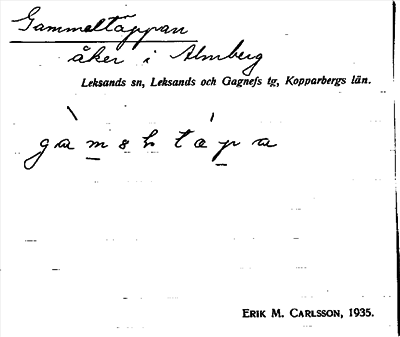 Gammeltäppan
åker i Almberg
Leksands sn, Leksands och Gagnefs tg, Kopparbergs län.
ERIK M. CARLSSON, 1935.